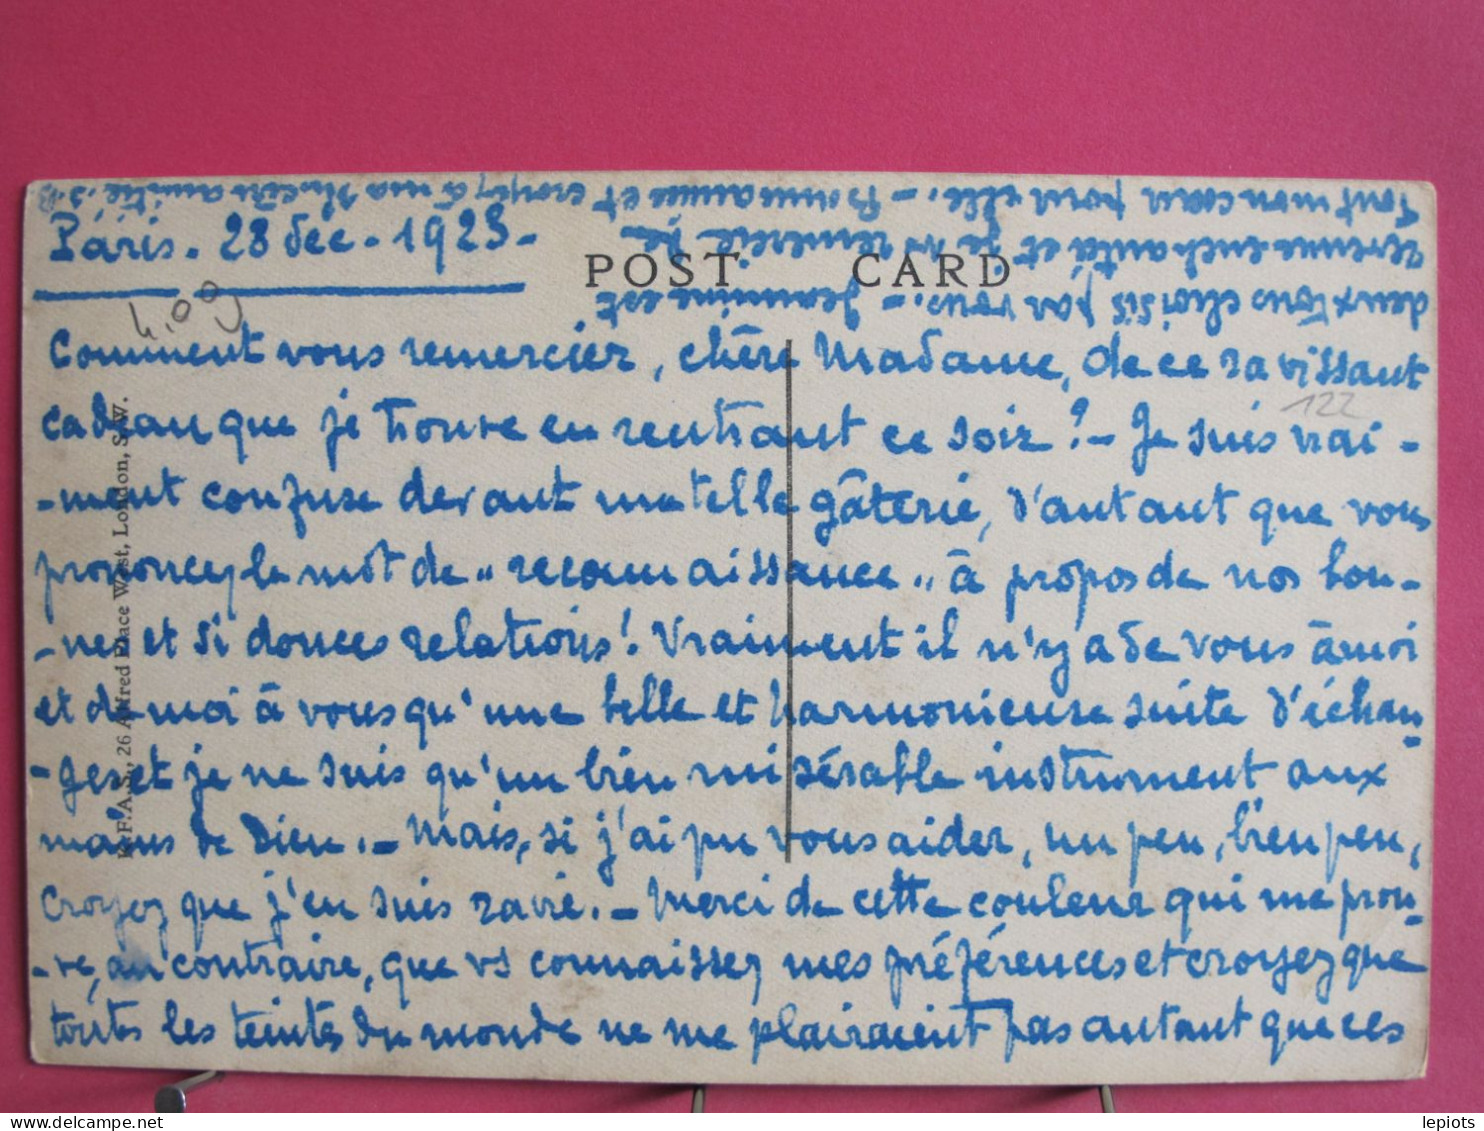 Paris. 28 Dec. 1923.
POST CARD
4.00
Comment vous remercier, chère Madame, de ce ravissant
122
cadeau que je trouve en rentrant ce soir ? – Je suis vrai-
-ment confuse devant une telle gâterie, d'autant que vous
prononcez le mot de "reconnaissance" à propos de nos bon-
-nes et si douces relations ! Vraiment il n'y a de vous à moi
et de moi à vous qu'une belle et harmonieuse suite d'échan-
-ges et je ne suis qu'un bien misérable instrument aux
mains de Dieu. – Mais, si j'ai pu vous aider, un peu, bien peu,
croyez que j'en suis ravie. – Merci de cette couleur qui me prou-
-ve, au contraire, que vs connaissez mes préférences et croyez que
toutes les teintes du monde ne me plairaient pas autant que ces
deux tons choisis par vous. – Jeannine est
revenue enchantée et je vs remercie de
tout mon cœur pour elle. – Bonne année et croyez à ma sincère amitié. S.B
F.A.S., 26 Alfred Place West, London, S.W.